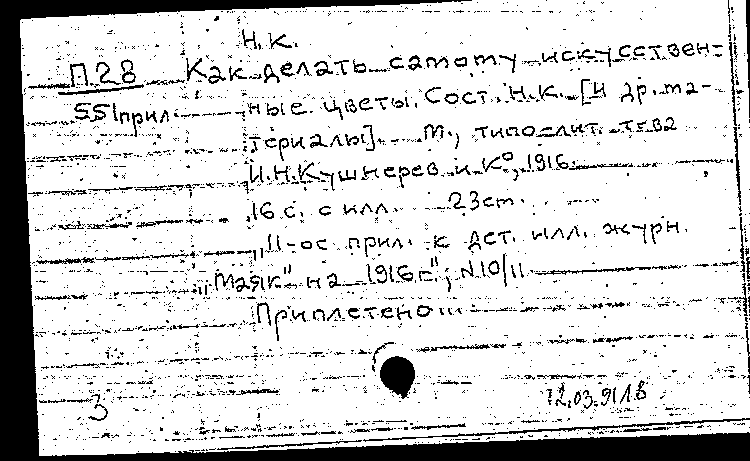 Н.К.
П.28 Как делать самому искусствен-
551прил. ные цветы. Сост. Н.К. [И др. ма-
териалы]. М., типо-лит. т-ва
И.Н.Кушнерев и Ко, 1916.
16 с. с илл. 23см.
„11-ое прил. к дет. илл. журн.
„Маяк" на 1916г."; N10/11
Приплетено...
3